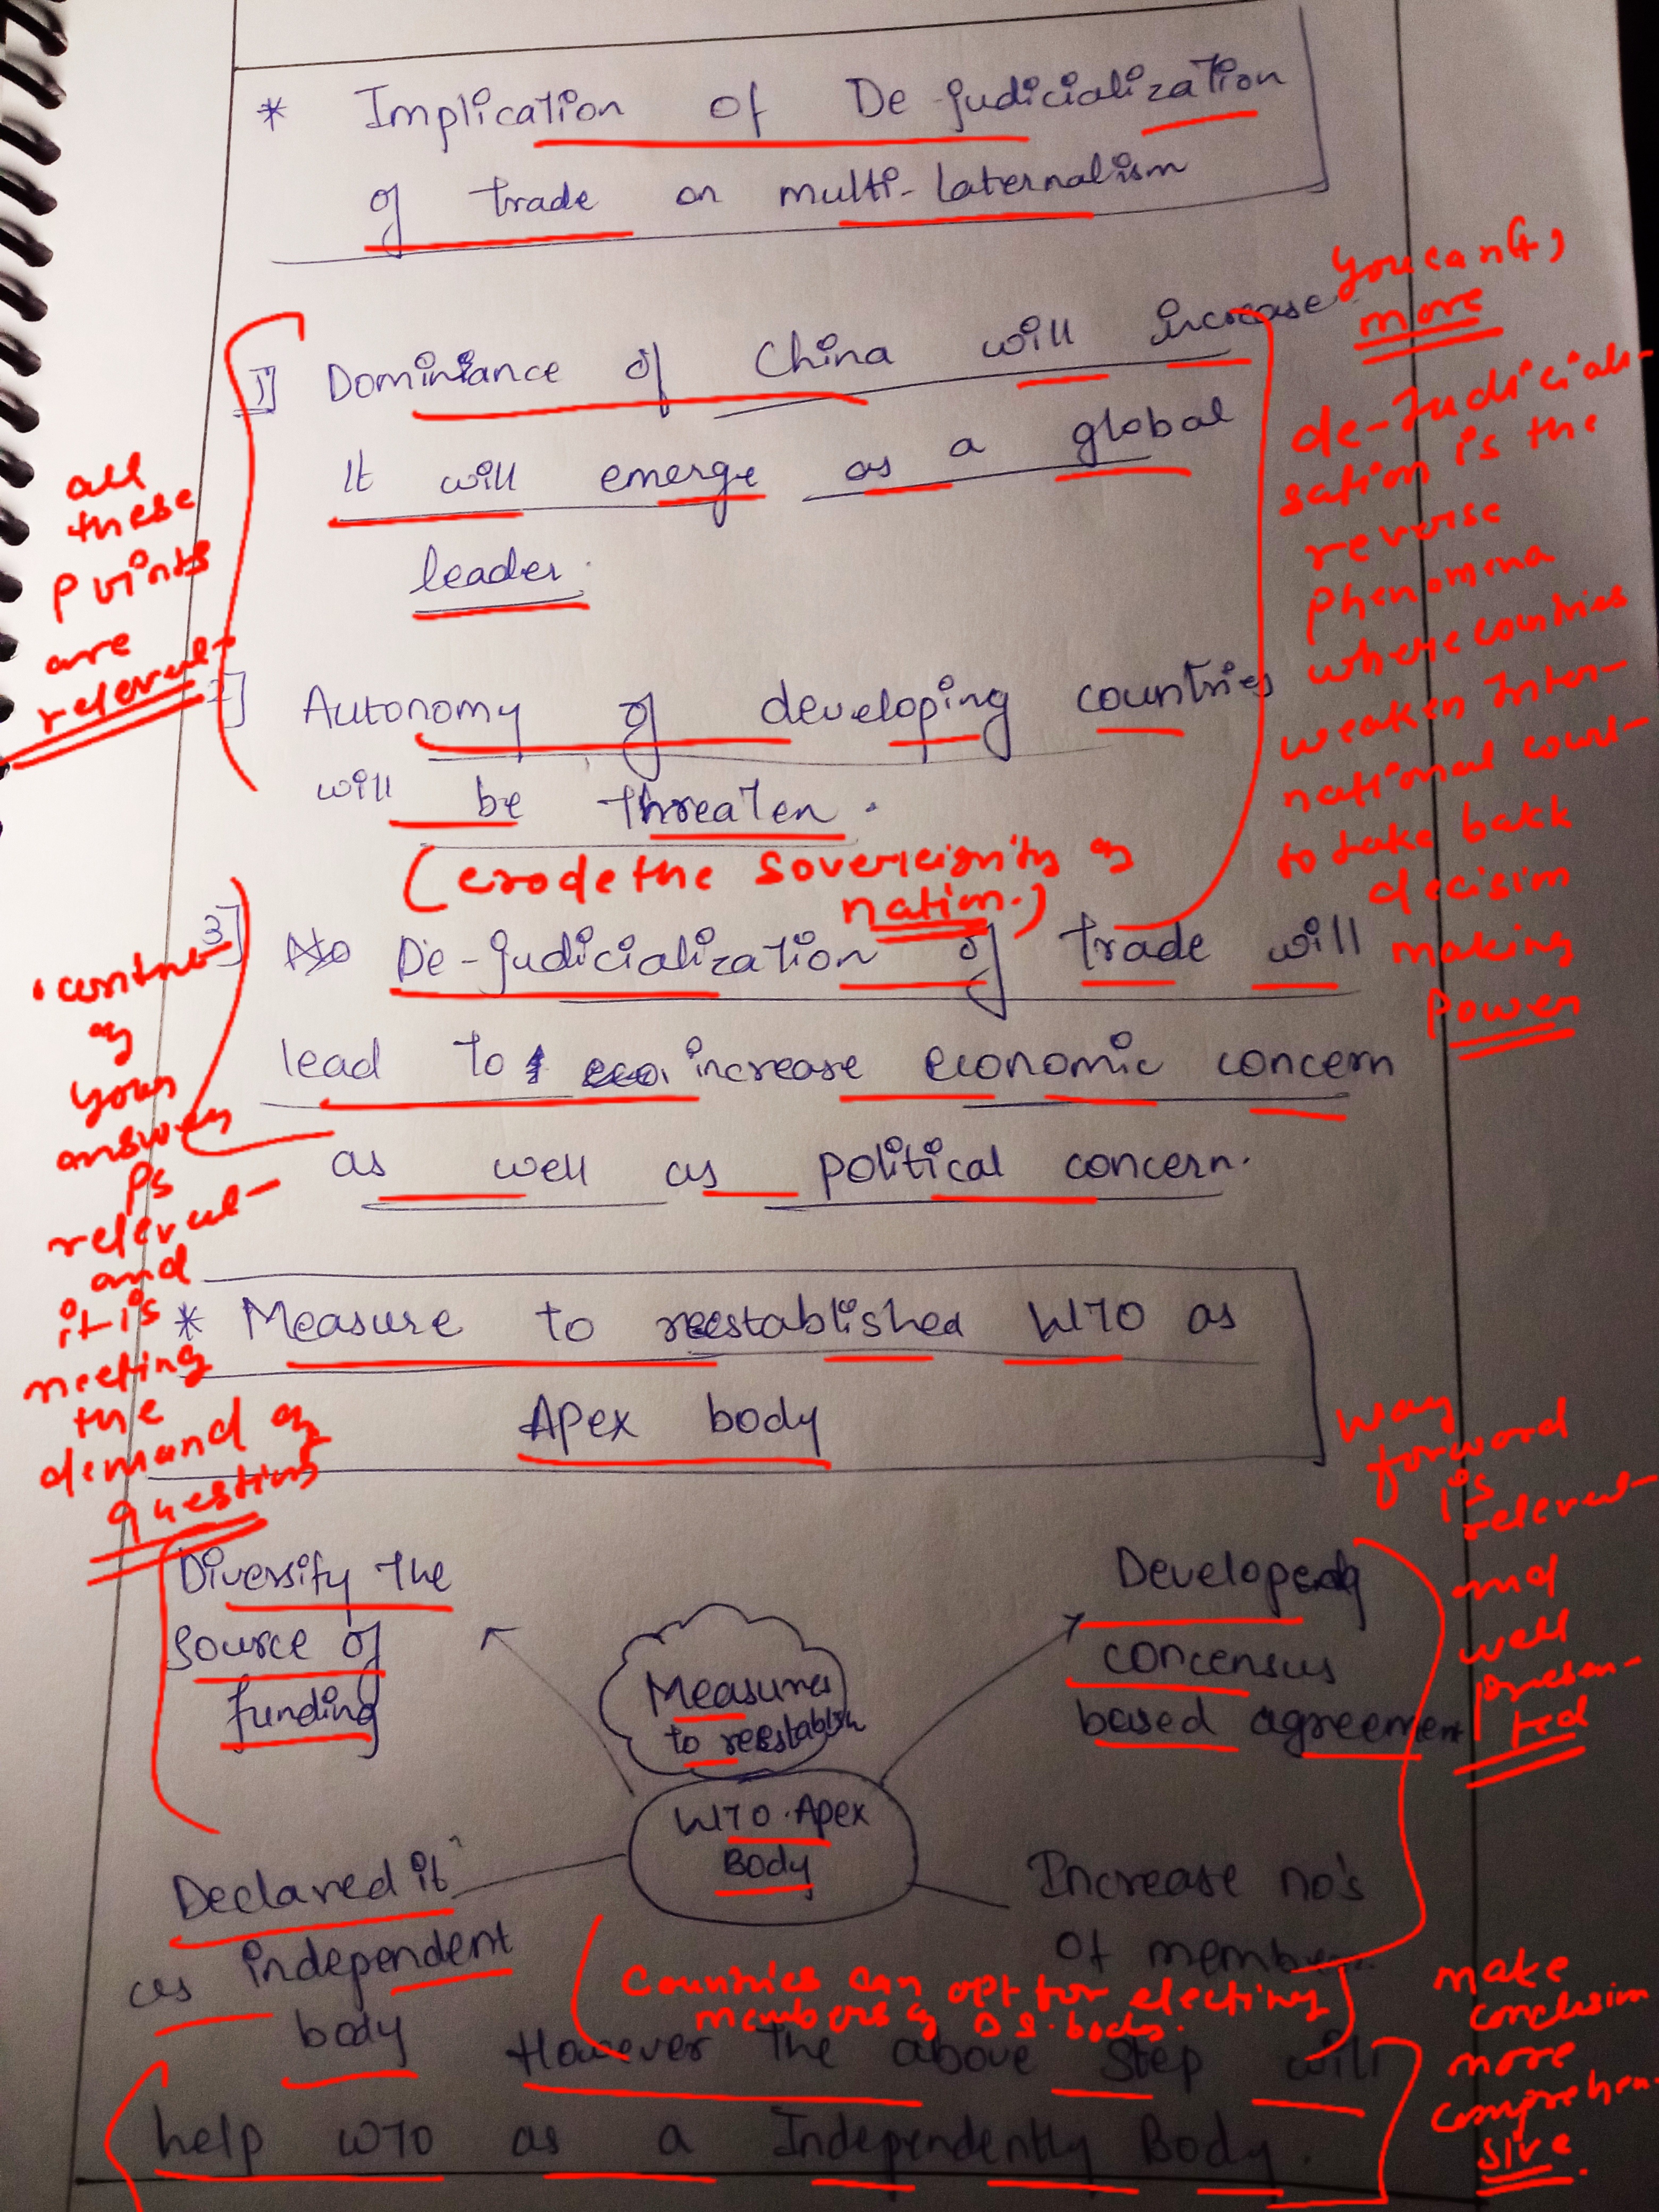 * Implication of De-judicialization
of trade on multi-laternalism
1] Dominiance of China will increase
It will emerge as a global
leader.
2] Autonomy of developing countries
will be threaten.
(erode the sovereignity of
nation.)
3] De-judicialization of trade will
lead to increase economic concern
as well as political concern.
* Measure to reestablished WTO as
Apex body
Diversify the
source of
funding
Measures
to reestablish
WTO Apex
Body
Developing
concensus
based agreement
Declared it
as independent
body
Increase no's
of member
Countries can opt for electing
members of D.S. body.
However the above step will
help WTO as a Independently Body.
all
these
points
are
relevant
content
of
your
answer
is
relevant
and
it is
meeting
the
demand of
question
You can +,
more
de-Judiciali-
sation is the
reverse
phenomena
where countries
weaken Inter-
national court
to take back
decision
making
power
way
forword
is
relevant
and
well
presen-
ted
make
conclusion
more
comprehen-
sive.